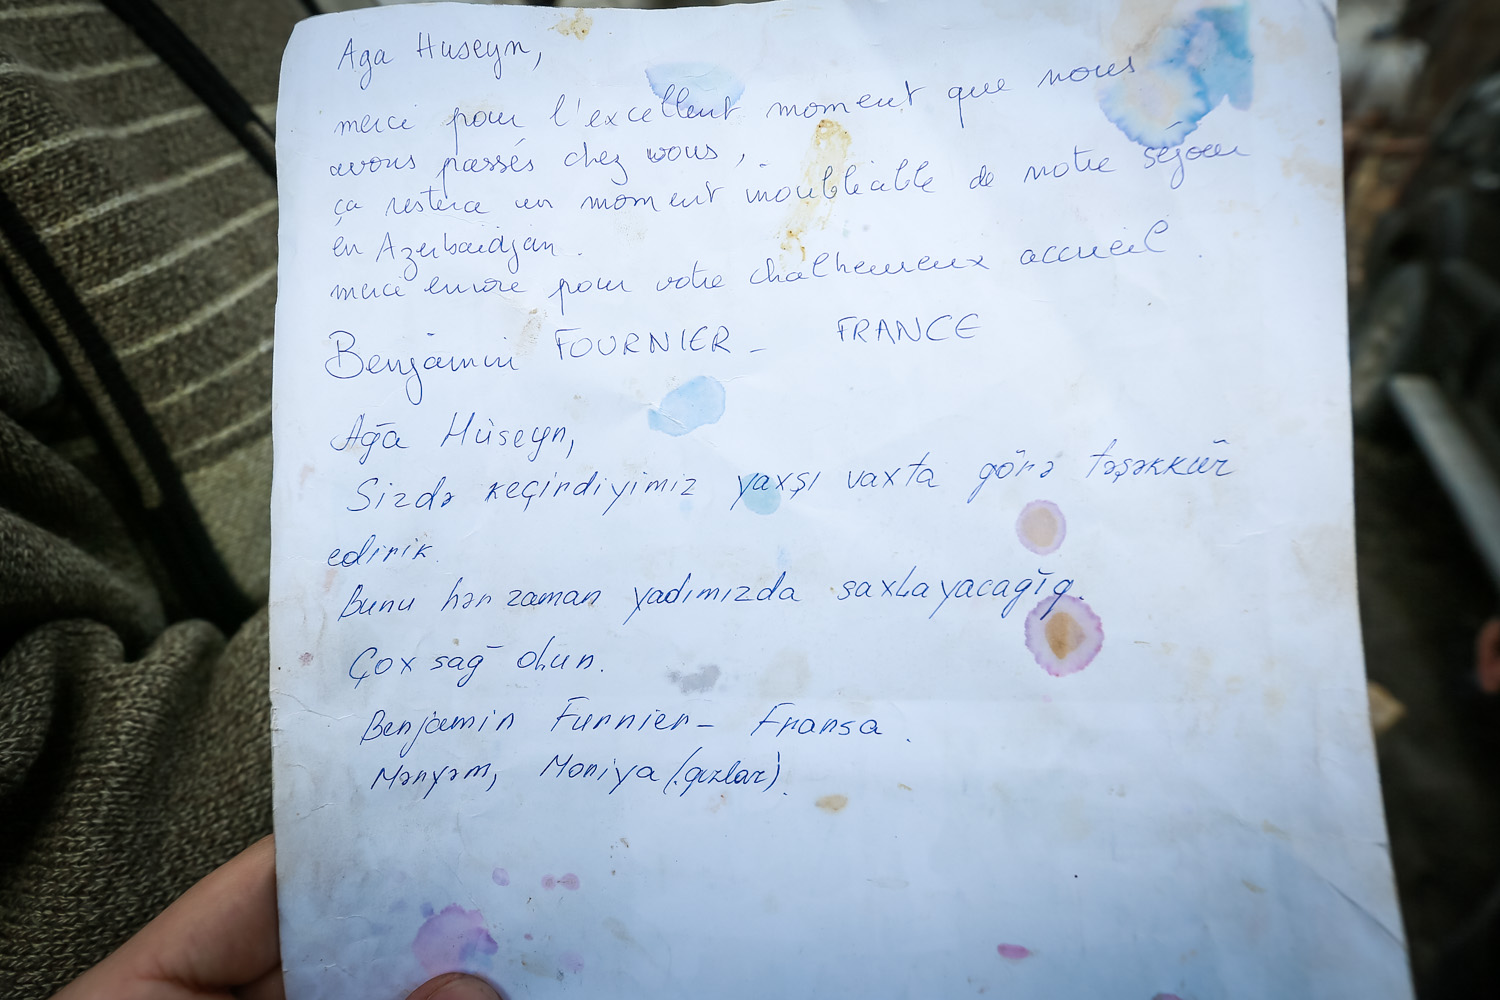 Aga Huseyn,
merci pour l'excellent moment que nous
avons passés chez vous,
ça restera un moment inoubliable de notre séjour
en Azerbaidjan.
merci encore pour votre chalheureux accueil.
Benjamin FOURNIER - FRANCE
Ağa Hüseyn,
Sizdə keçirdiyimiz yaxşı vaxta görə təşəkkür
edirik.
Bunu hər zaman yadımızda saxlayacağıq.
Çox sağ olun.
Benjamin Furnier - Fransa.
Məryəm, Moniya (qızlar).